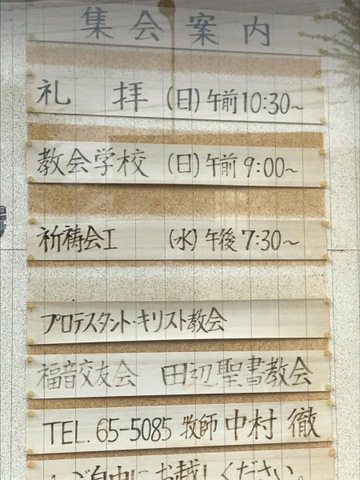 集会案内
礼 拝 (日) 午前10:30~
教会学校 (日) 午前9:00~
祈祷会I (水) 午後7:30~
プロテスタント・キリスト教会
福音交友会 田辺聖書教会
TEL. 65-5085 牧師 中村 徹
ご自由にお越しください。